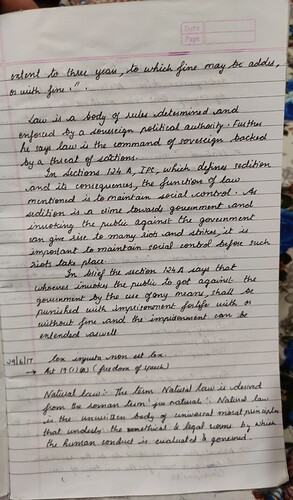 Date
Page
extent to three years, to which fine may be added,
or with fine.".
Law is a body of rules determined and
enforced by a sovereign political authority. Further
he says law is the command of sovereign backed
by a threat of sations.
In Sections 124 A, IPC, which defines sedition
and its consequences, the function of law
mentioned is to maintain social control. As
sedition is a crime towards government and
invoking the public against the government
can give rise to many riot and strikes, it is
important to maintain social control before such
riots take place.
In brief the section 124A says that
whoever invokes the public to got against the
government by the use of any means, shall be
punished with imprisonment for life with or
without fine and the imprisonment can be
extended as well
29/6/17 lex injusta non est lex.
→ Art 19(1)(a) (freedom of speech)
Natural law:- The term Natural law is derived
from the roman term 'jus naturals'. Natural law
is the unwritten body of universal moral principles
that underlie the ethical & legal norms by which
the human conduct is evaluated & governed.